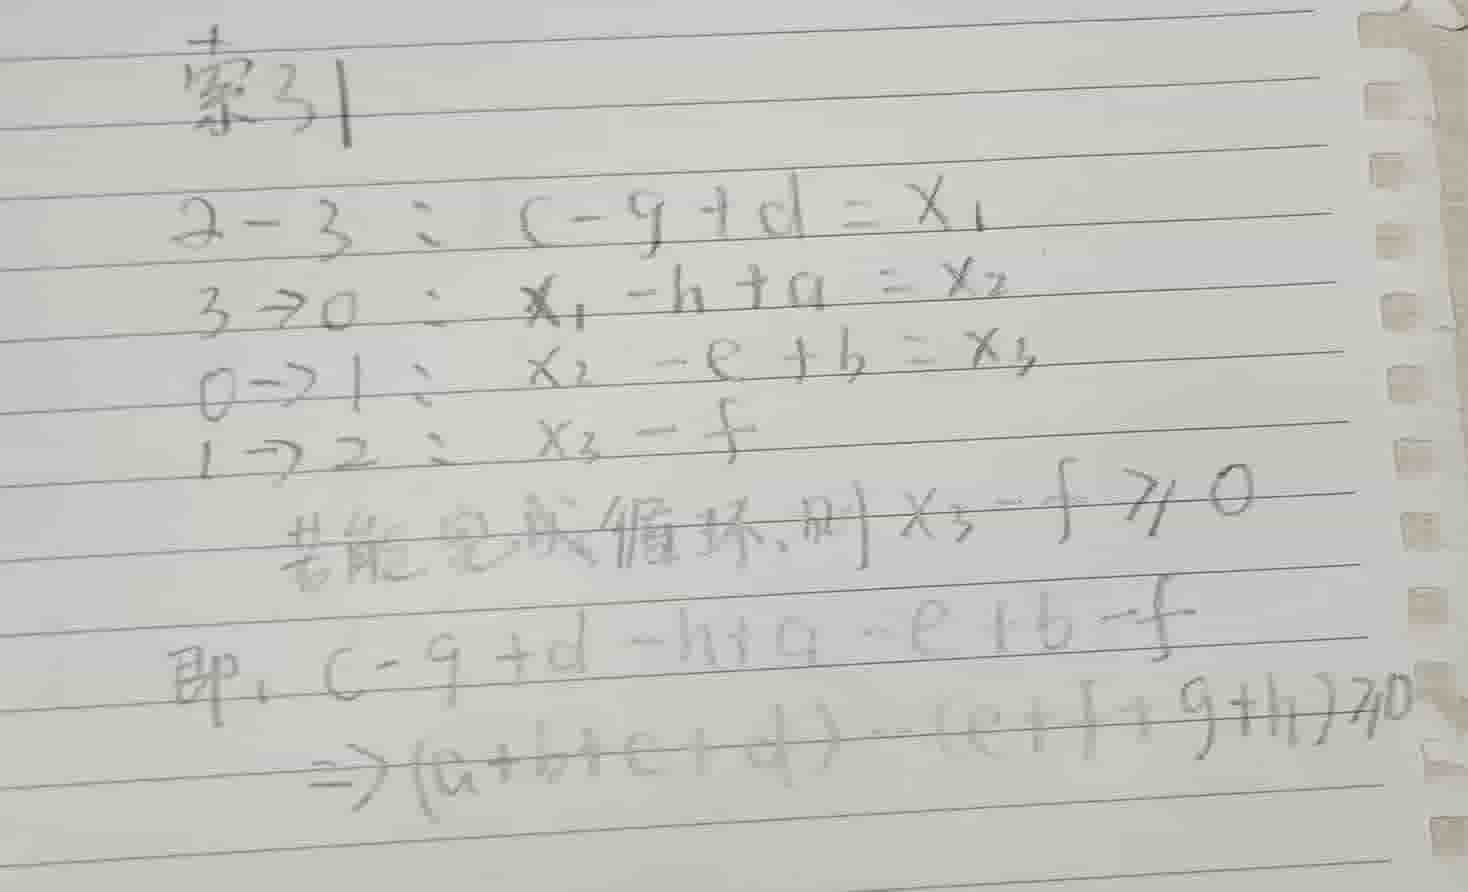 索引
2-3: c-g+d=x₁
3→0: x₁-h+a=x₂
0→1: x₂-e+b=x₃
1→2: x₃-f
若能完成循环,则x₃-f⩾0
即, c-g+d-h+a-e+b-f
⇒(a+b+c+d)-(e+f+g+h)⩾0